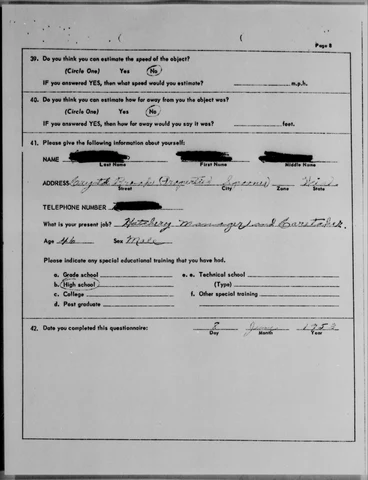 Page 8
39. Do you think you can estimate the speed of the object?
(Circle One) Yes No
IF you answered YES, then what speed would you estimate? m.p.h.
40. Do you think you can estimate how far away from you the object was?
(Circle One) Yes No
IF you answered YES, then how far away would you say it was? feet.
41. Please give the following information about yourself:
NAME
Last Name First Name Middle Name
ADDRESS Spooner Wis
Street City Zone State
TELEPHONE NUMBER
What is your present job? Hatchery Manager and Caretaker
Age 46 Sex Male
Please indicate any special educational training that you have had.
a. Grade school e. e. Technical school
b. High school (Type)
c. College f. Other special training
d. Post graduate
42. Date you completed this questionnaire: 1953
Day Month Year